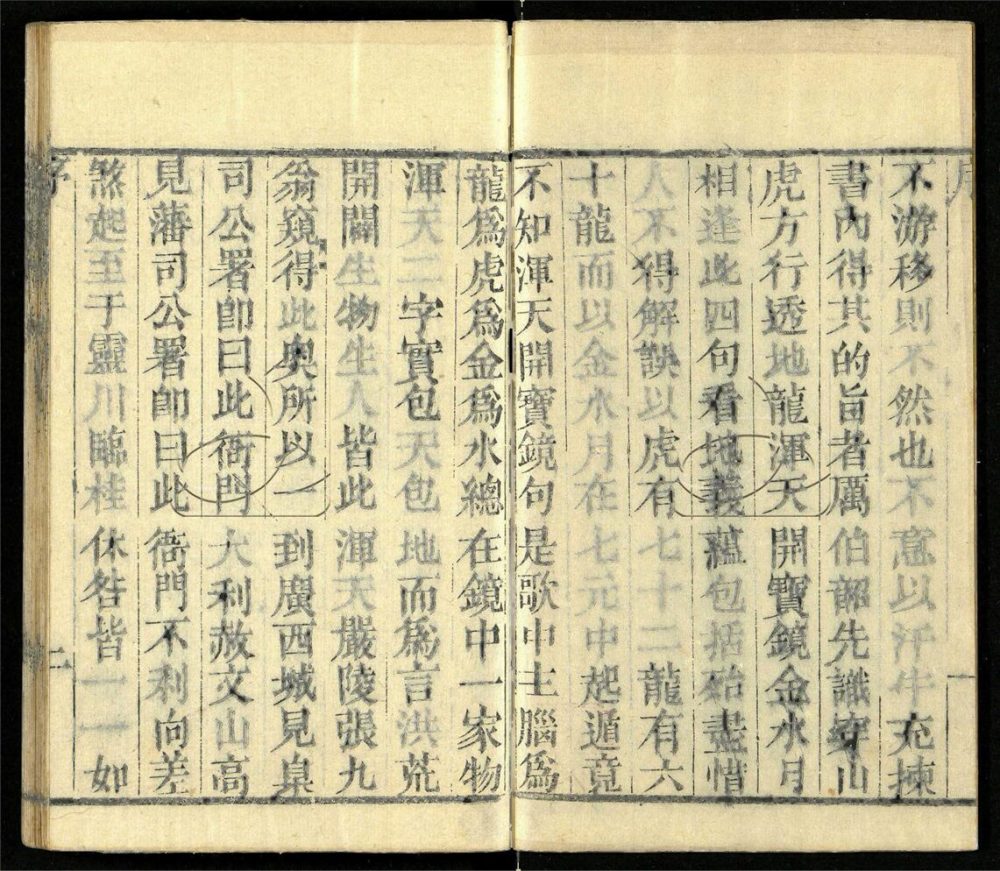 不游移則不然也不意以汗牛充揀
書內得其的旨者厲伯韶先識穿山
虎方行透地龍渾天開寶鏡金水月
相逢此四句看地義蘊包括殆盡惜
人不得解誤以虎有七十二龍有六
十龍而以金水月在七元中起遁竟
不知渾天開寶鏡句是歌中主腦為
龍為虎為金為水總在鏡中一家物
渾天二字實包天包地而為言洪荒
開闢生物生人皆此渾天嚴陵張九
翁窺得此奧所以一到廣西城見臬
司公署卽曰此衙門大利赦文山高
見藩司公署卽曰此衙門不利向差
煞起至于靈川臨桂休咎皆一一如
序
二